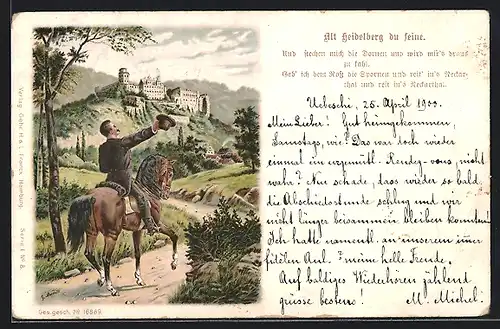 Alt Heidelberg du feine.
Und stechen mich die Dornen und wird mir's draus
zu kahl,
Geb' ich dem Roß die Spornen und reit' in's Neckar-
thal und reit in's Neckarthal.
25. April 1900.
Mein Lieber! Gut heimgekommen,
Samstags, wie? Das war doch wieder
einmal ein urgemütl. Rendez-vous, nicht
wahr? Nur schade, dass wieder so bald
die Abschiedsstunde schlug und wir
nicht länger beisammen bleiben konnten.
Ich hatte namentl. an unserem immer
fidelen meine helle Freude.
Auf baldiges Wiederhören zählend
grüsse bestens! M. Michel.
Verlag Gebr. H. & L. Franck, Hamburg. Serie I № 8.
Ges. gesch. № 16869